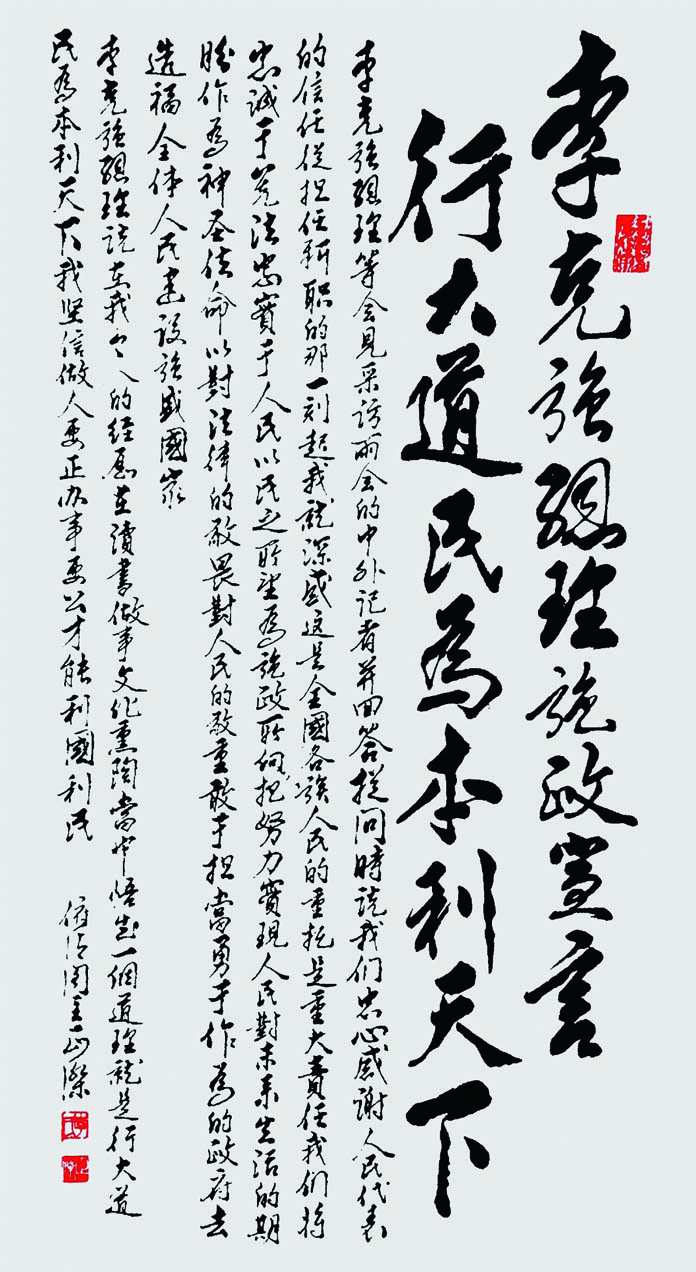 李克強總理施政宣言
行大道民為本利天下
李克強總理等會見采訪兩會的中外記者并回答提問時説我们忠心感謝人民代表
的信任從担任新职的那一刻起我就深感这是全國各族人民的重托是重大責任我们將
忠誠于宪法忠實于人民以民之所望為施政所向把努力實現人民對未来生活的期
盼作為神圣使命以對法律的敬畏對人民的敬重敢于担當勇于作為的政府去
造福全体人民建设強盛國家
李克強總理説在我個人的經歷在讀書做事文化熏陶當中悟出一個道理就是行大道
民為本利天下我坚信做人要正办事要公才能利國利民